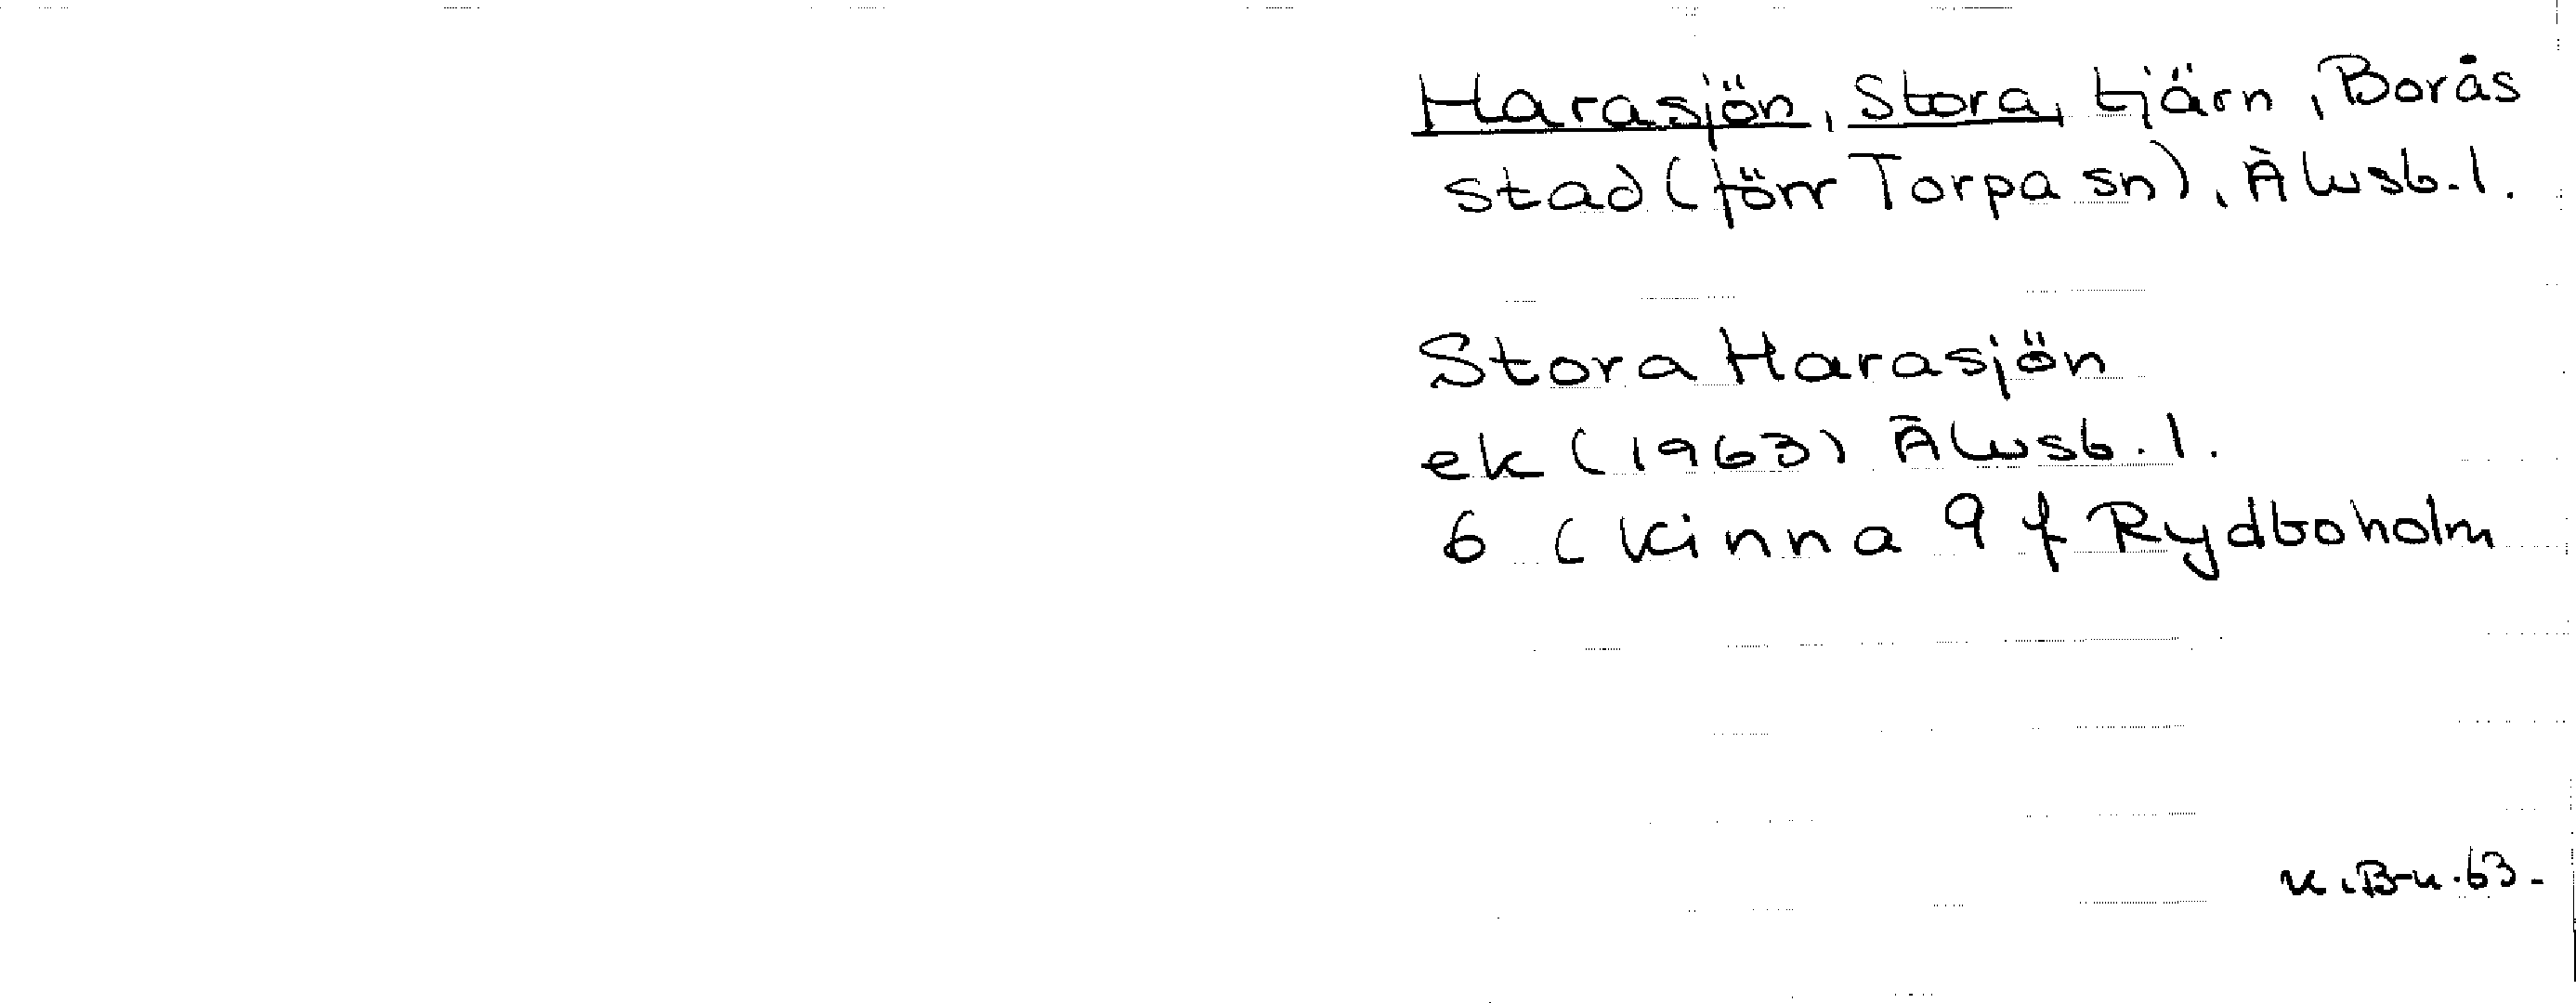 Harasjön, Stora, tjärn, Borås
stad (förr Torpa sn), Älvsb. l.
Stora Harasjön
ek (1963) Älvsb. l.
6 C Kinna 9 f Rydboholm
K.B-n.63.